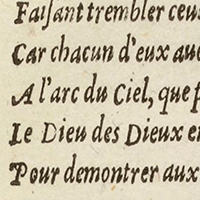 Faiſant trembler ceux
Car chacun d'eux aue
A l'arc du Ciel, que p
Le Dieu des Dieux en
Pour demontrer aux